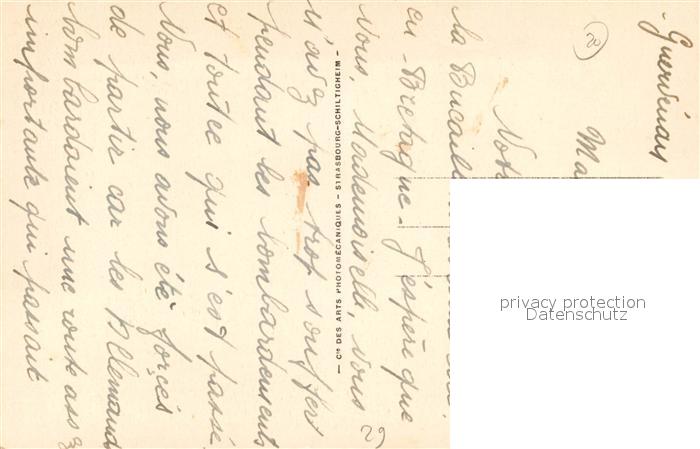 Guervénay
2
Ma
Not
la Bucaille
en Bretagne - J'espère que
Vous, Mademoiselle, vous
n'avez pas trop souffert
pendant les bombardements
et tout ce qui s'est passé.
Nous, nous avons été forçés
de partir car les Allemands
bombardaient une route assez
importante qui passait
29
— Cie DES ARTS PHOTOMÉCANIQUES – STRASBOURG-SCHILTIGHEIM –
privacy protection
Datenschutz